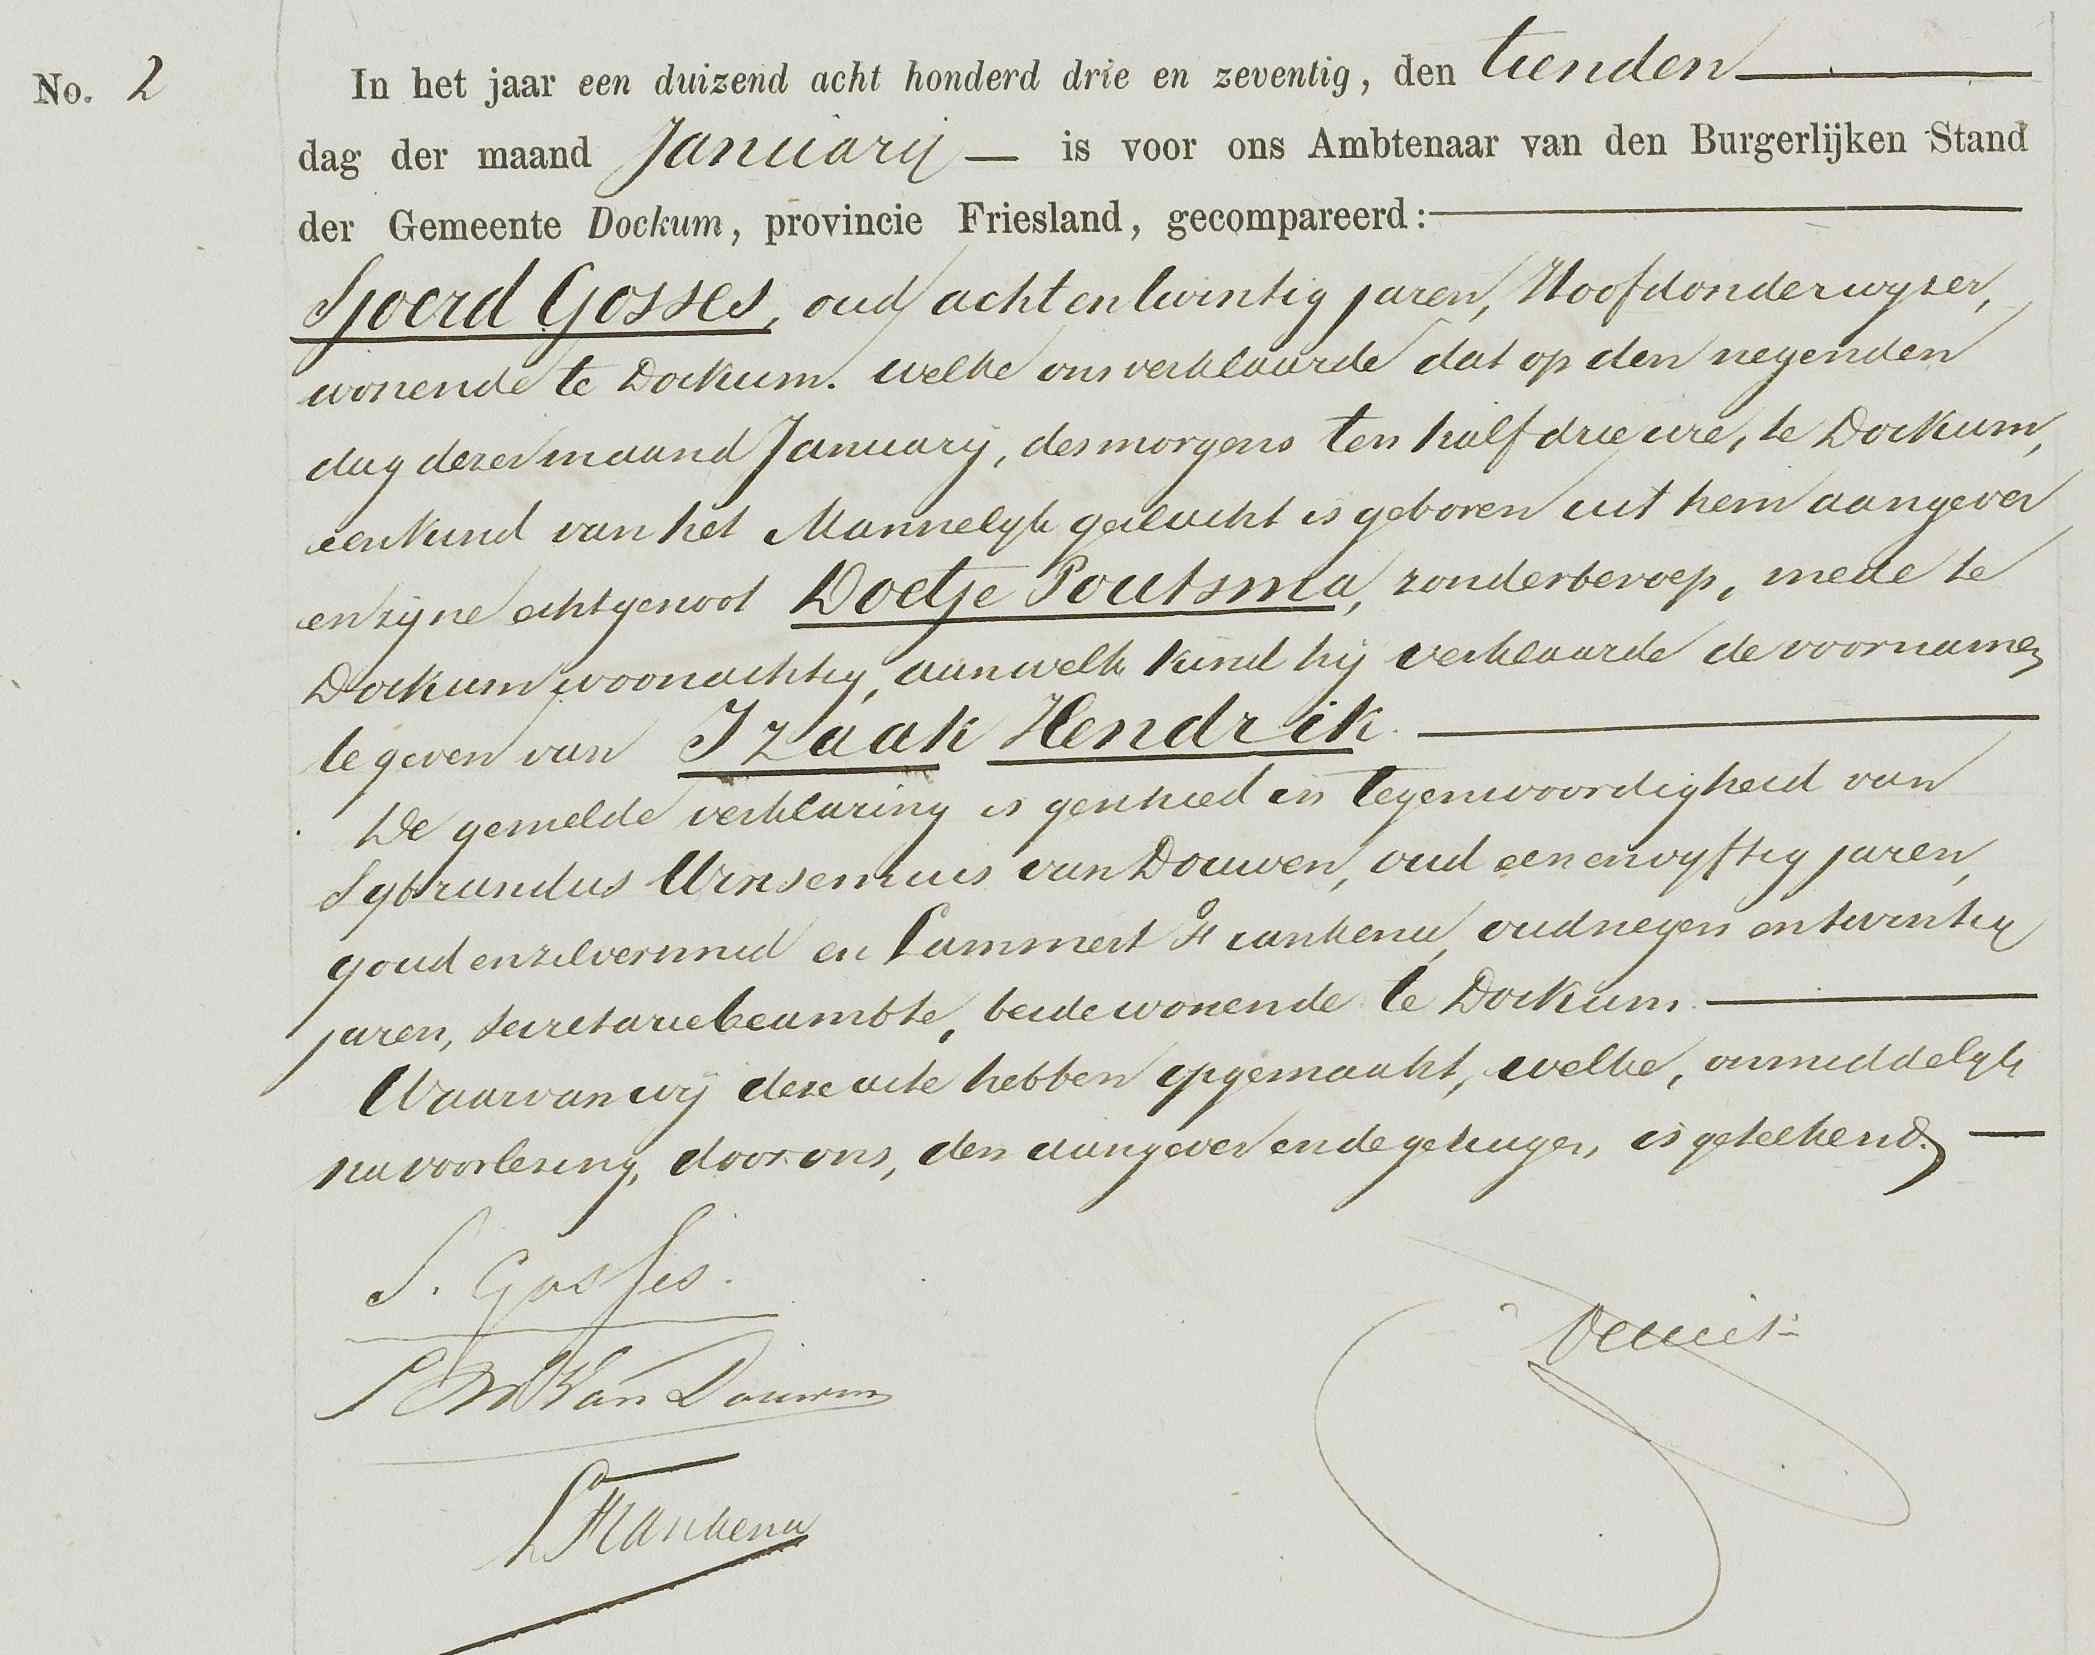 No. 2
In het jaar een duizend acht honderd drie en zeventig, den tienden
dag der maand Januarij is voor ons Ambtenaar van den Burgerlijken Stand
der Gemeente Dockum, provincie Friesland, gecompareerd:
Sjoerd Gosses, oud acht en twintig jaren, Hoofdonderwyzer,
wonende te Dockum. welke ons verklaarde dat op den negenden
dag dezer maand January, des morgens ten half drie ure, te Dockum,
een kind van het Mannelyk geslacht is geboren uit hem aangever
en zyne echtgenoot Doetje Poutsma, zonder beroep, mede te
Dockum woonachtig, aan welk kind hij verklaarde de voornamen
te geven van Izaak Hendrik.
De gemelde verklaring is geschied in tegenwoordigheid van
Sybrandus Winsemius van Douwen, oud een en vyftig jaren,
goud en zilversmid en Lammert Frankena, oud negen en twintig
jaren, secretarie beambte, beide wonende te Dockum
Waarvan wij deze acte hebben opgemaakt, welke, onmiddelyk
na voorlezing, door ons, den aangever en de getuigen, is geteekend.
S. Gosses.
S W Van Douwen
L Frankena